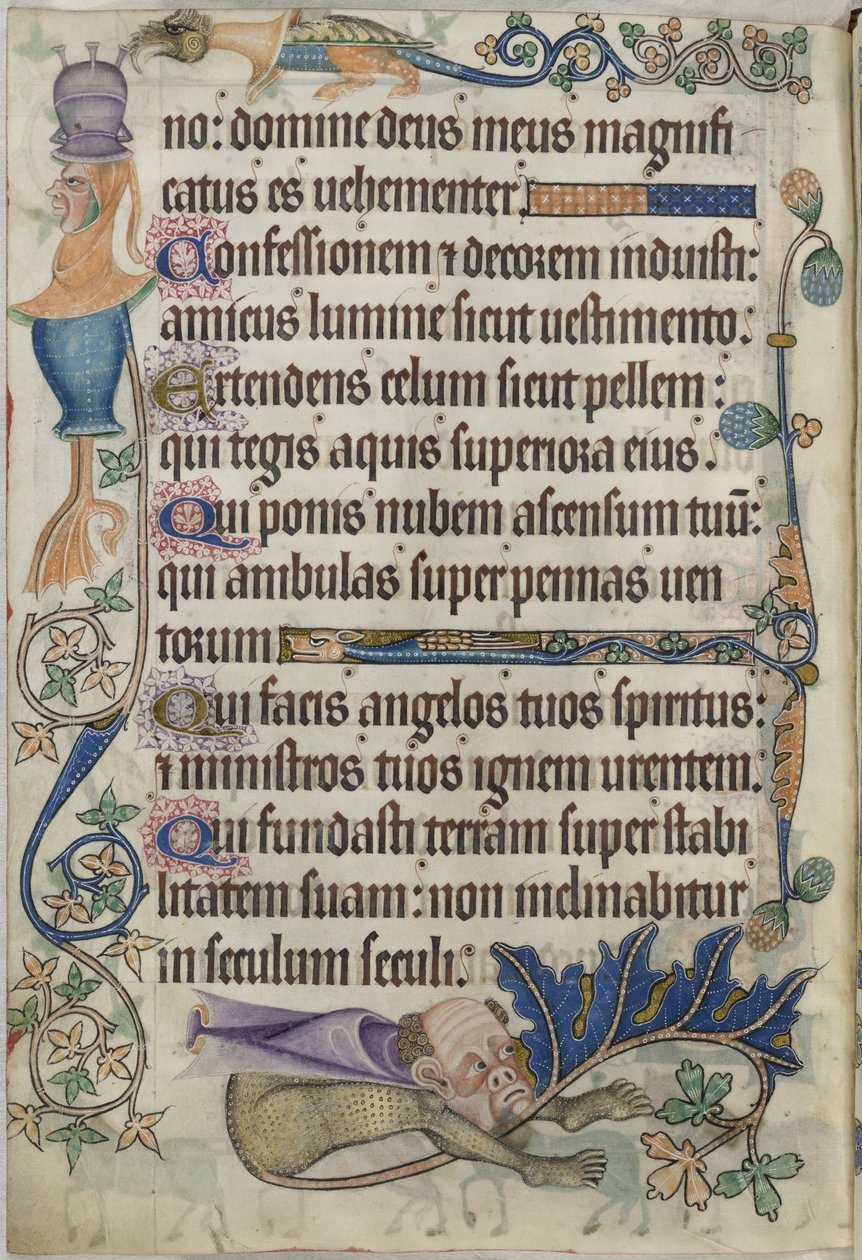 no: domine deus meus magnifi
catus es uehementer.
Confessionem ⁊ decorem induisti:
amictus lumine sicut uestimento.
Extendens celum sicut pellem:
qui tegis aquis superiora eius.
Qui ponis nubem ascensum tuū:
qui ambulas super pennas uen
torum
Qui facis angelos tuos spiritus:
⁊ ministros tuos ignem urentem.
Qui fundasti terram super stabi
litatem suam: non inclinabitur
in seculum seculi.